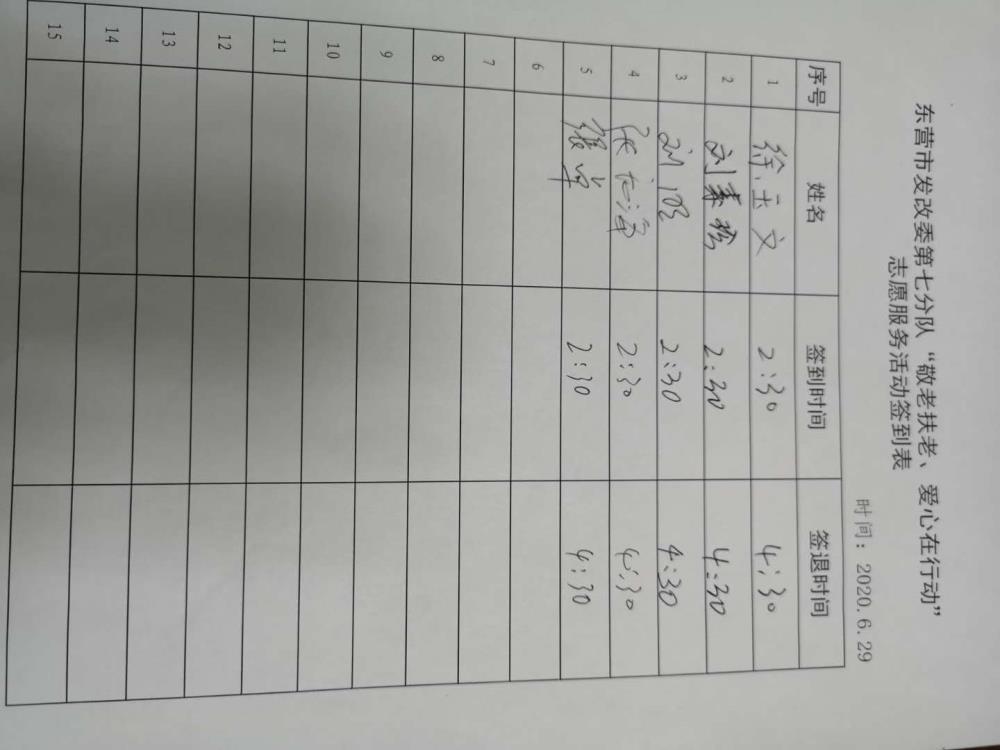 东营市发改委第七分队“敬老扶老、爱心在行动”
志愿服务活动签到表
时间：2020.6.29
序号 姓名 签到时间 签退时间
1 徐玉文 2:30 4:30
2 刘秦松 2:30 4:30
3 2:30 4:30
4 2:30 4:30
5 张华 2:30 4:30
6
7
8
9
10
11
12
13
14
15